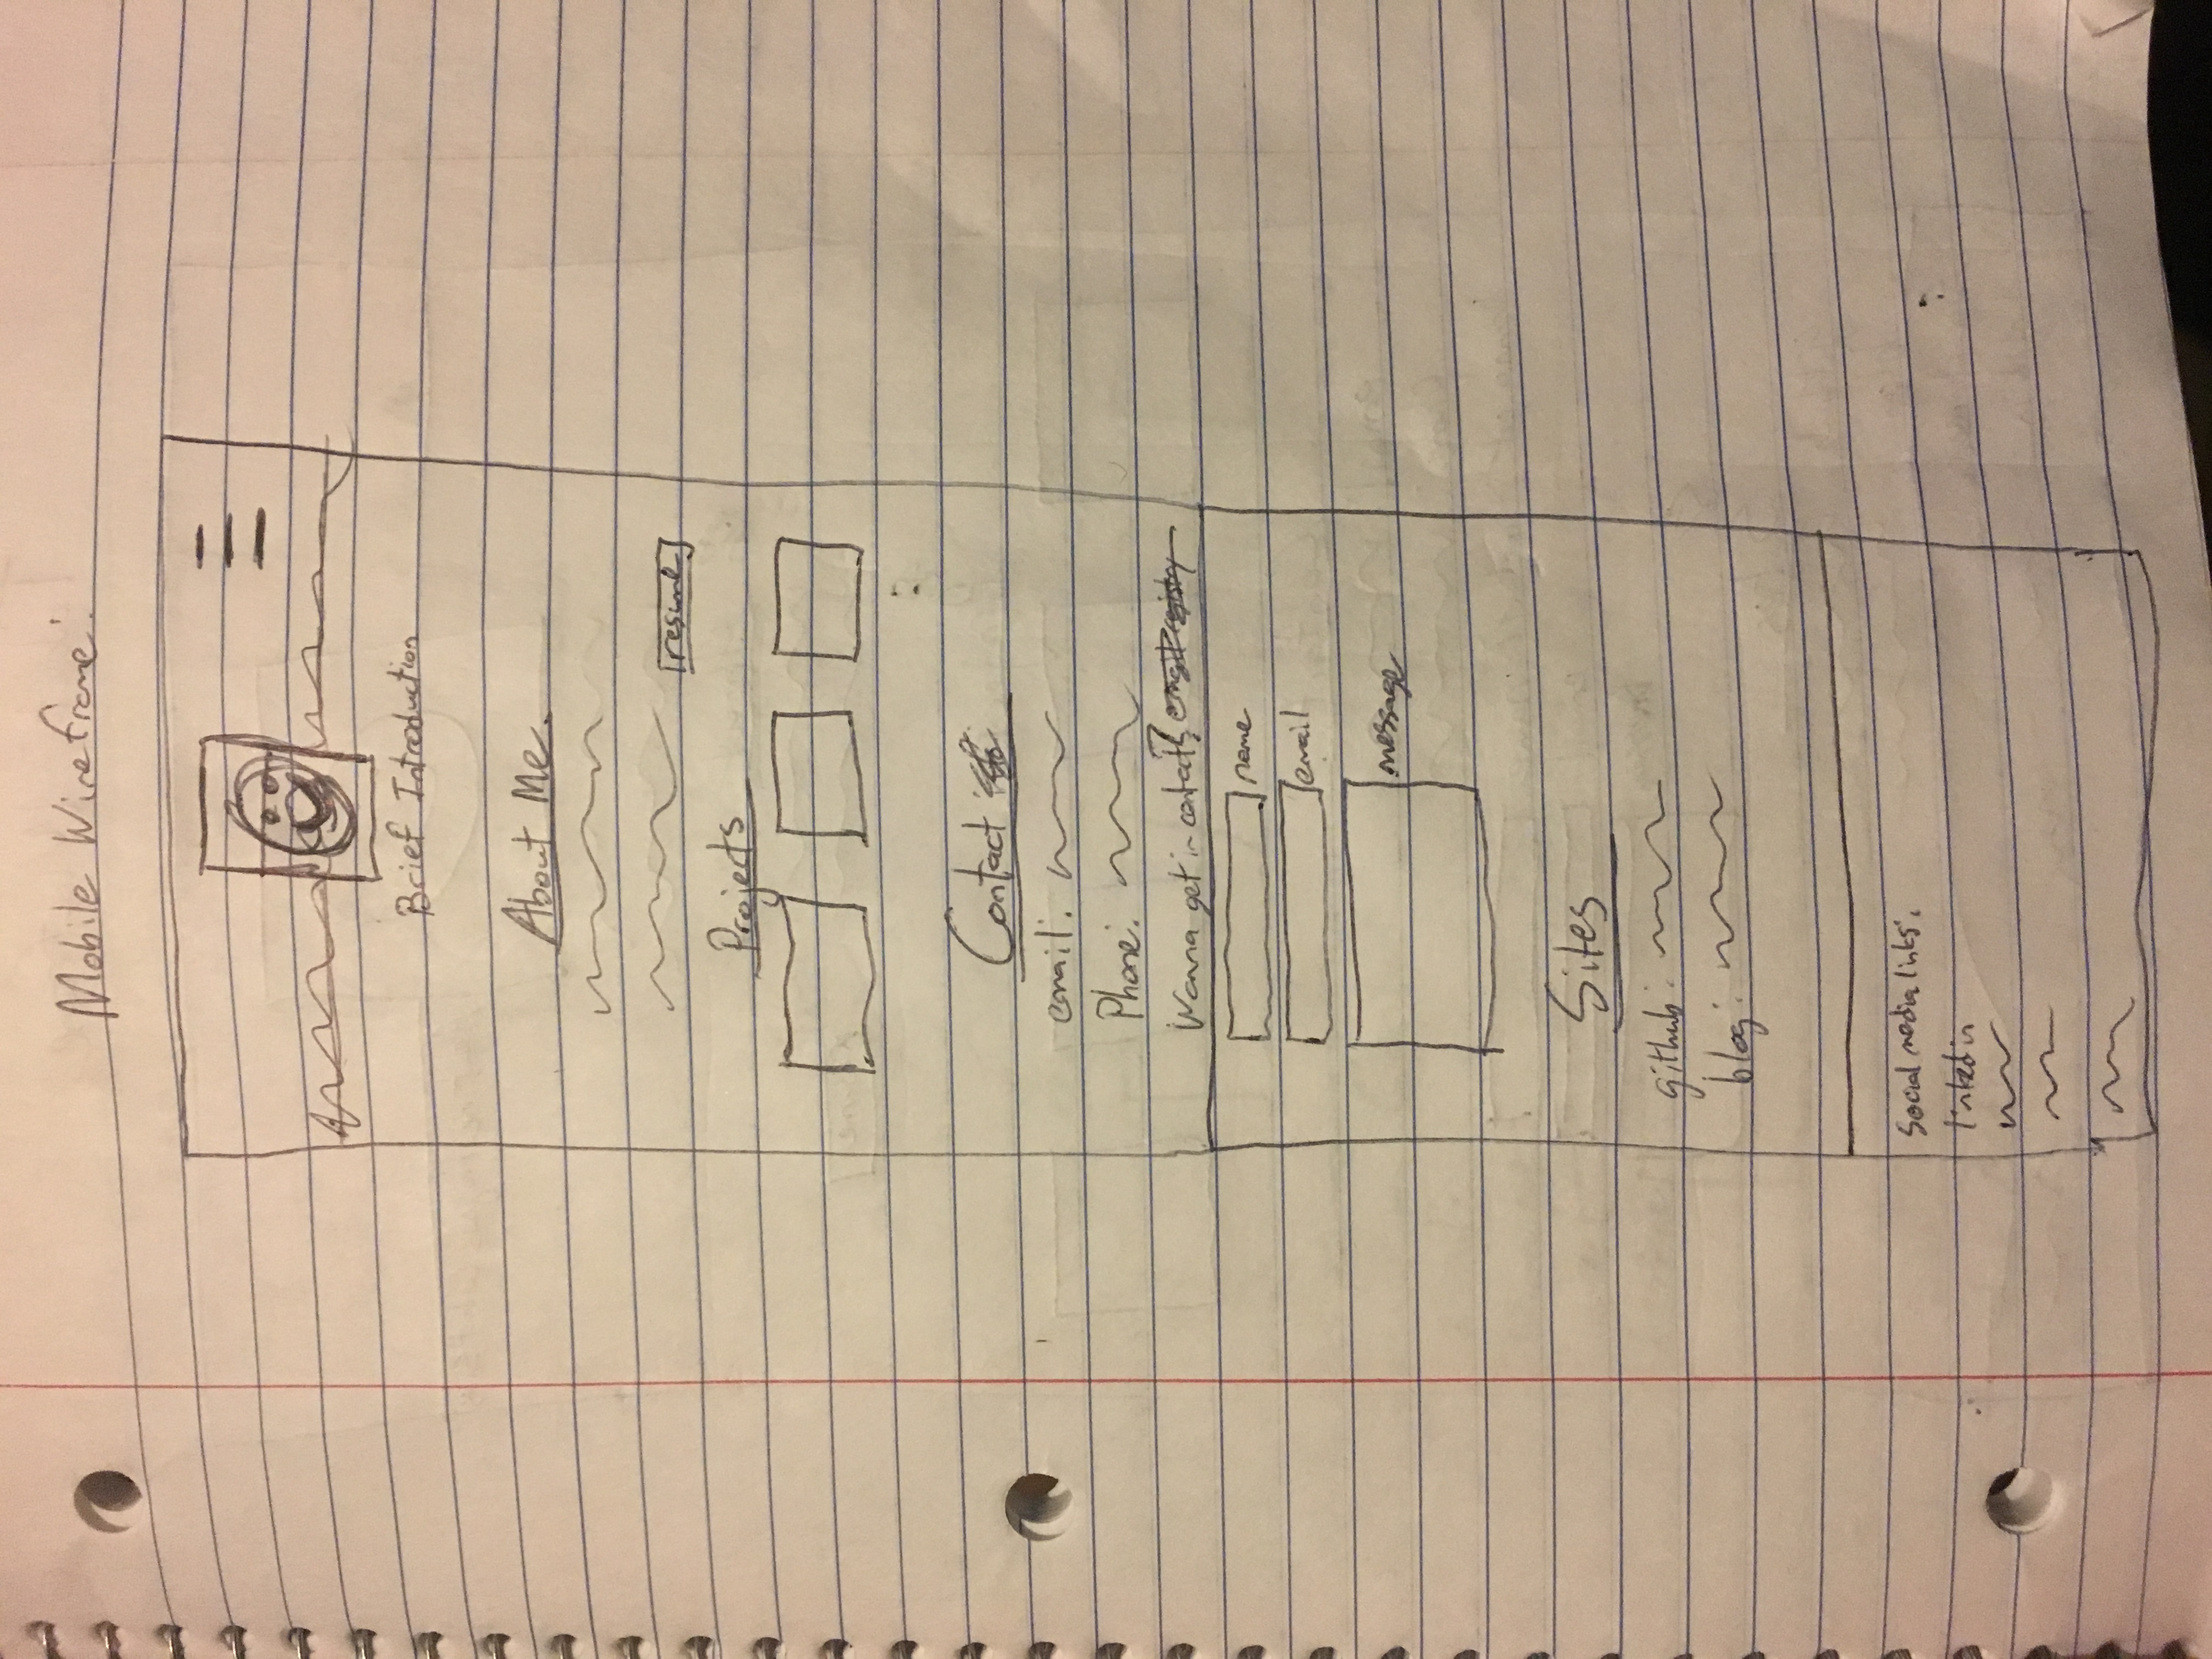 Mobile Wireframe:
Brief Introduction
About Me.
resume
Projects
Contact
email:
Phone:
Wanna get in contact?
name
email
message
Sites
github:
blog:
Social media links:
linkedin